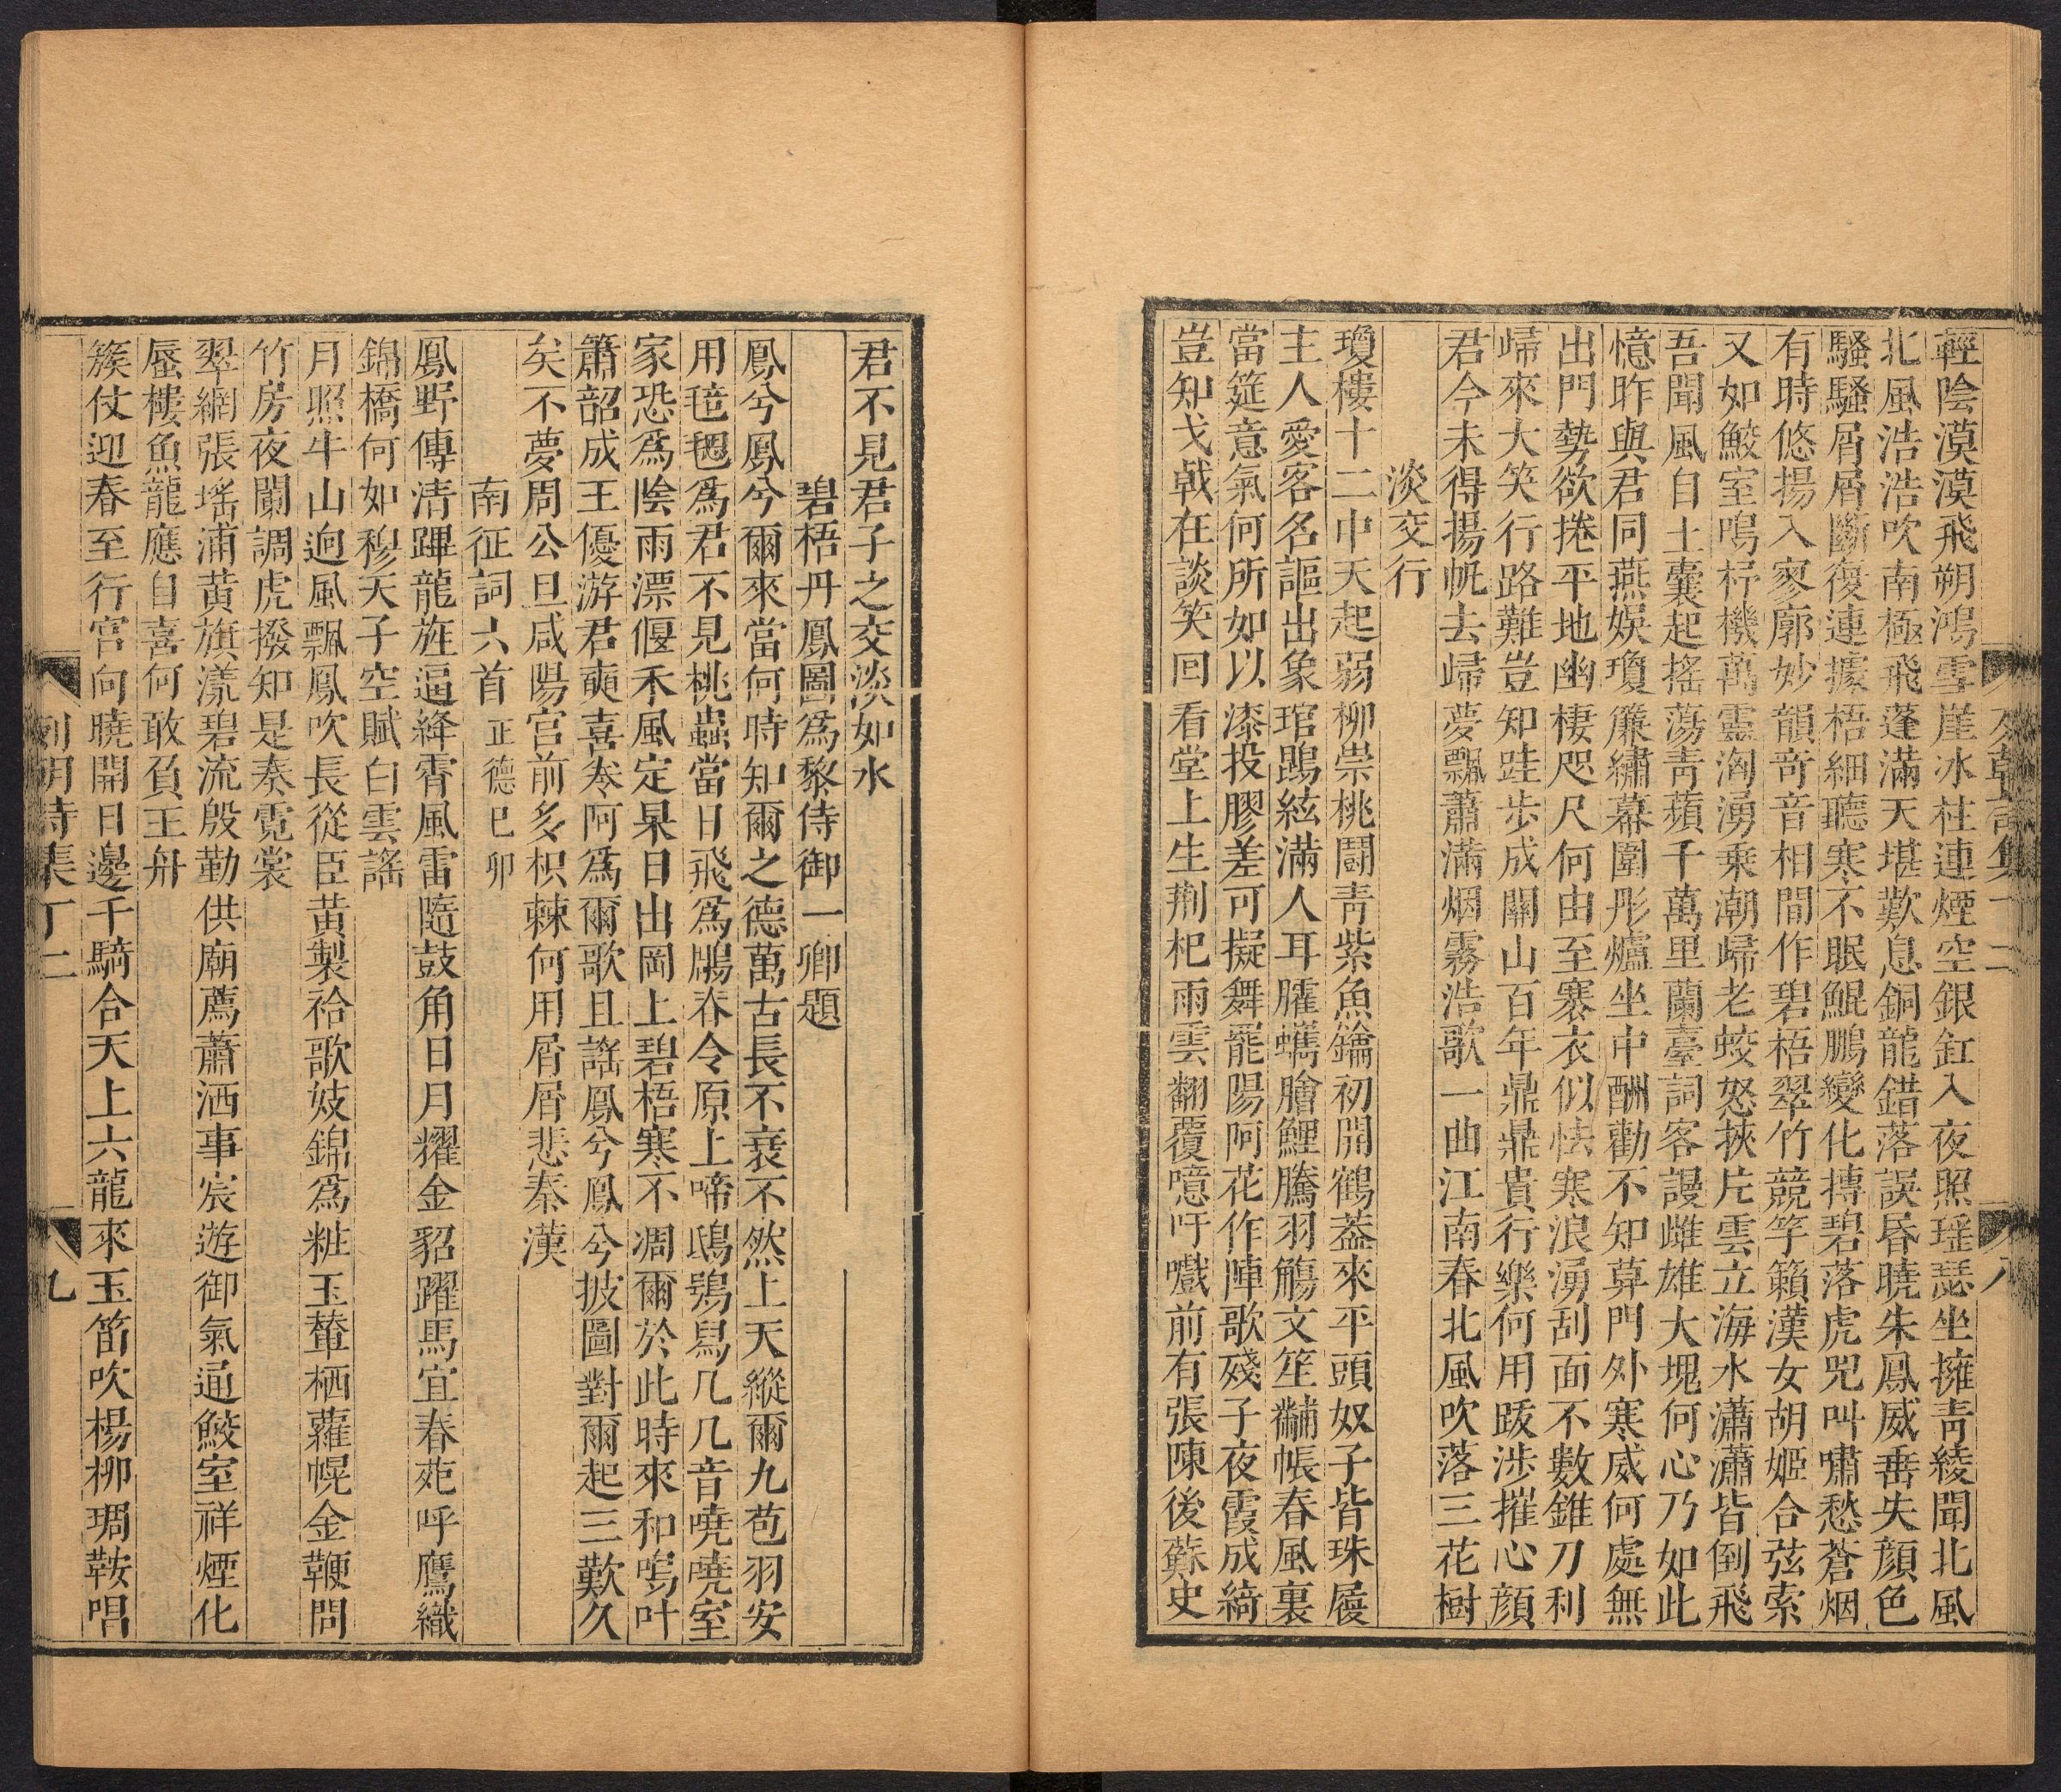 輕陰漠漠飛朔鴻雪崖冰柱連煙空銀釭入夜照瑤瑟坐擁靑綾聞北風
北風浩浩吹南極飛蓬滿天堪歎息銅龍錯落誤昏曉朱鳳威垂失顏色
騷騷屑屑斷復連據梧細聽寒不眠鯤鵬變化摶碧落虎兕叫嘯愁蒼烟
有時悠揚入寥廓妙韻竒音相間作碧梧翠竹競竽籟漢女胡姬合弦索
又如鮫室鳴杼機萬靈洶湧乗潮歸老蛟怒挾片雲立海水瀟瀟皆倒飛
吾聞風自土囊起搖蕩靑蘋千萬里蘭臺詞客謾雌雄大塊何心乃如此
憶昨與君同燕娛瓊簾繡幕圍彤爐坐中酬勸不知算門外寒威何處無
出門勢欲捲平地幽棲咫尺何由至褰衣似怯寒浪湧刮面不數錐刀利
歸來大笑行路難豈知跬步成關山百年鼎鼎貴行樂何用跋涉摧心顏
君今未得揚帆去歸夢飄蕭滿烟霧浩歌一曲江南春北風吹落三花樹
淡交行
瓊樓十二中天起弱柳崇桃鬬靑紫魚鑰初開鶴葢來平頭奴子皆珠履
主人愛客名謳出象琯鵾絃滿人耳臛蠵膾鯉騰羽觴文筀黼帳春風裏
當筵意氣何所如以漆投膠差可擬舞罷陽阿花作陣歌殘子夜霞成綺
豈知戈戟在談笑回看堂上生荆杞雨雲翻覆噫吁嚱前有張陳後蘇史
君不見君子之交淡如水
碧梧丹鳳圖爲黎侍御一卿題
鳳兮鳳兮爾來當何時知爾之德萬古長不衰不然上天縱爾九苞羽安
用毰毸爲君不見桃蟲當日飛爲鵰春令原上啼鴟鴞舄几几音嘵嘵室
家恐爲陰雨漂偃禾風定杲日出岡上碧梧寒不凋爾於此時來和鳴叶
簫韶成王優游君奭喜卷阿爲爾歌且謠鳳兮鳳兮披圖對爾起三歎久
矣不夢周公旦咸陽宫前多枳棘何用屑屑悲秦漢
南征詞六首 正德己卯
鳳野傳清蹕龍旌逼絳霄風雷隨鼓角日月耀金貂躍馬宜春苑呼鷹織
錦橋何如穆天子空賦白雲謠
月照牛山逈風飄鳳吹長從臣黄製袷歌妓錦爲粧玉輦栖蘿幌金鞭問
竹房夜闌調虎撥知是奏霓裳
翠網張瑤浦黄旗漾碧流殷勤供廟薦蕭洒事宸遊御氣通鮫室祥煙化
蜃樓魚龍應自喜何敢負王舟
簇仗迎春至行宫向曉開日邊千騎合天上六龍來玉笛吹楊柳琱鞍唱
列朝詩集丁二
九